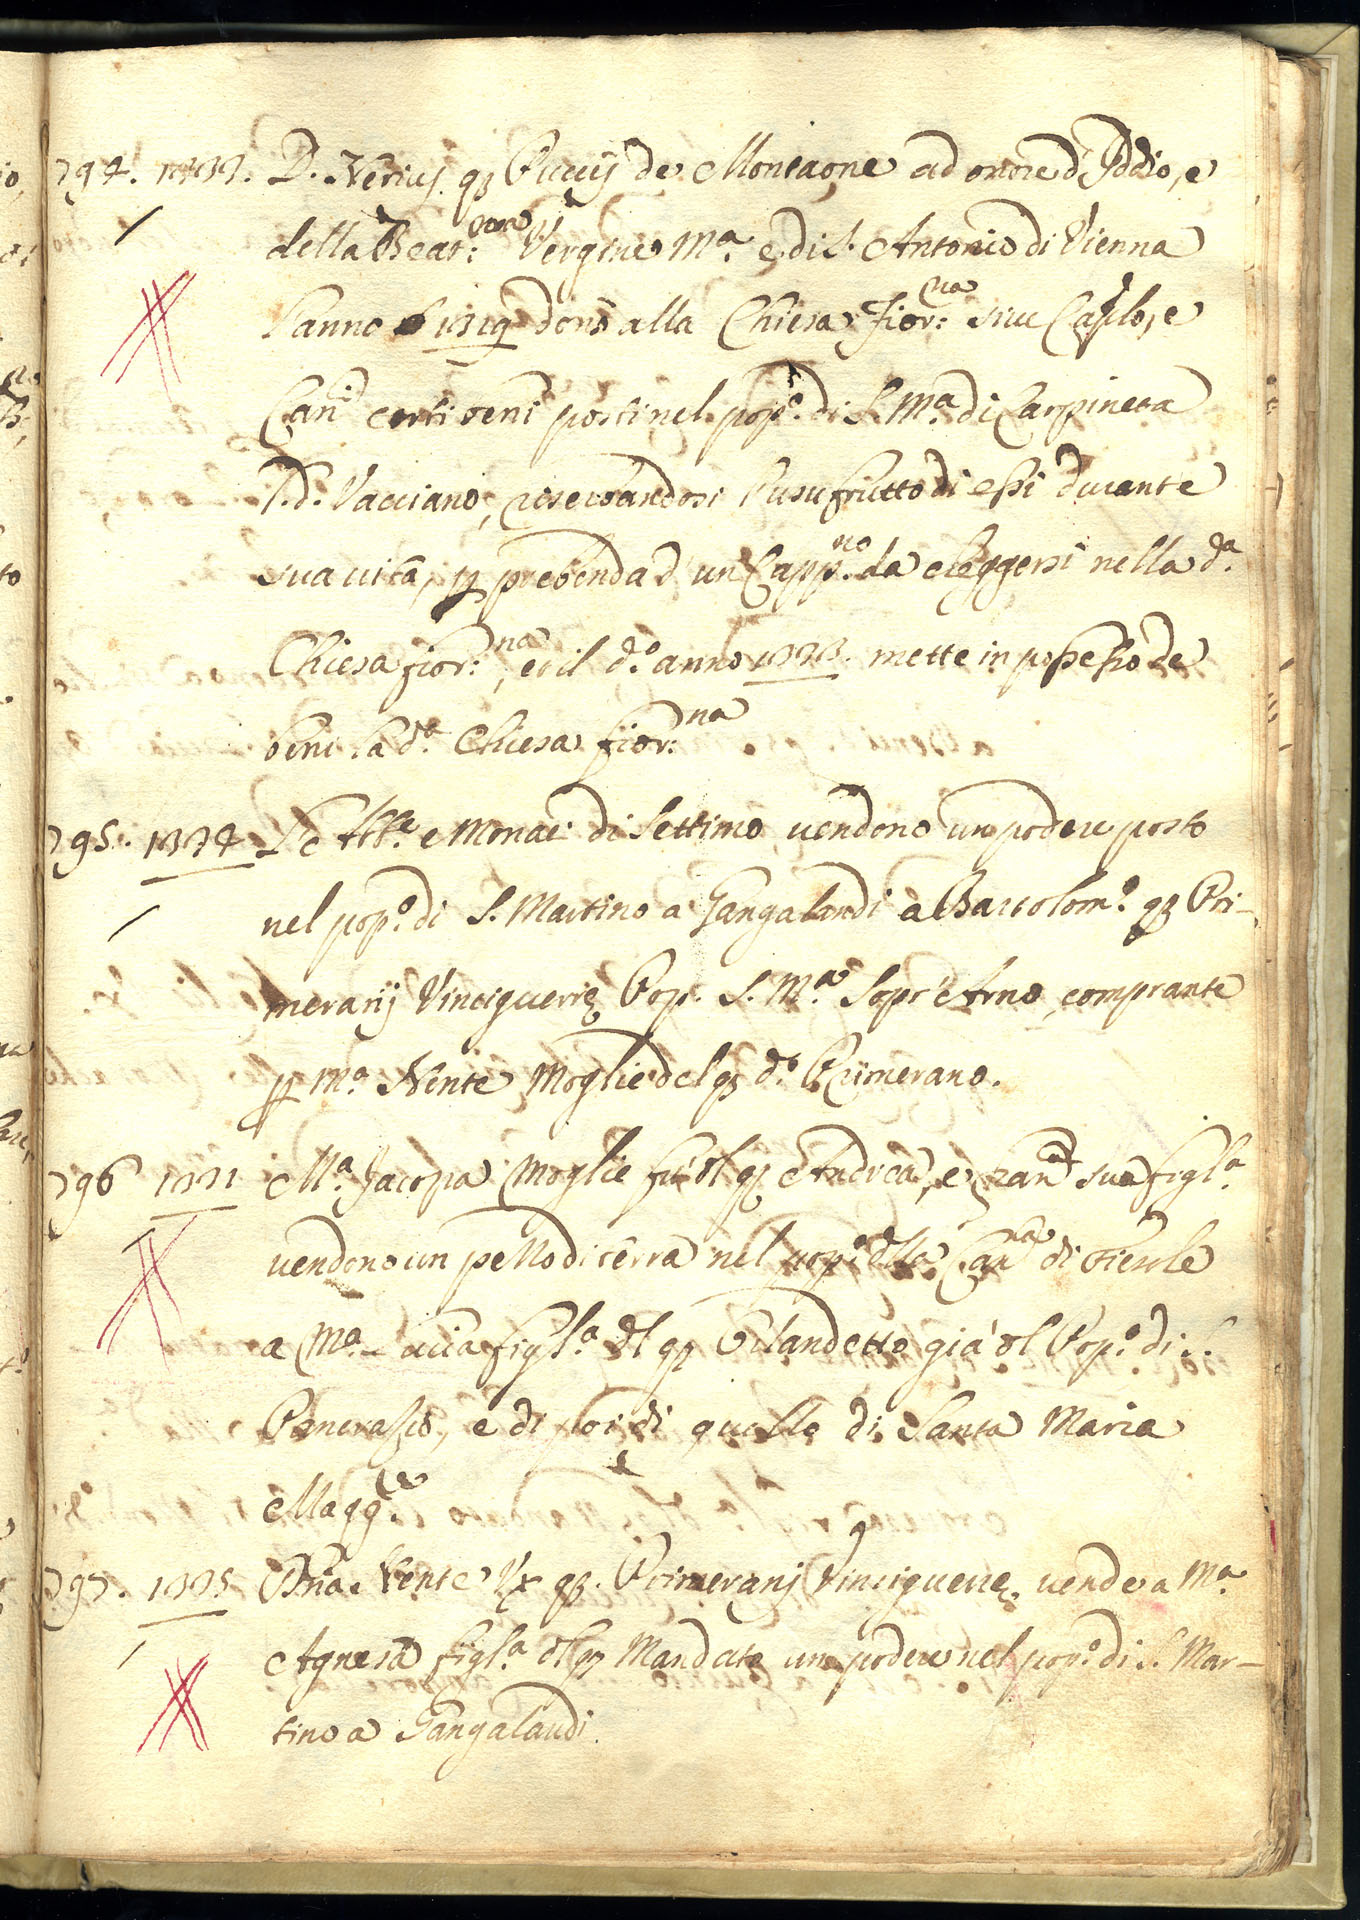 794. 1333. D. Nerius qz Puccij de Montaone ad onore d'Iddio, e
della Beat:ma Vergine Ma. e di S. Antonio di Vienna
l'anno 1319 donò alla Chiesa fior:na sive Caplo, e
Can:ci certi beni posti nel pop.o di S. Ma. di Carpineta
l.d. Vacciano, riserbandosi l'usufrutto di essi durante
sua vita, p prebenda d'un Capp.no da eleggersi nella d.a
Chiesa fior:na, et il d.o anno 1333. mette in possesso de
beni la d.a Chiesa fior:na
795. 1334 Lo Abb.e e Monaci di Settimo vendono un podere posto
nel pop.o di S. Martino a Gangalandi a Bartolom.o qz Pri-
merarij Vinciguerre Pop. S. Ma. Sopr'Arno, comprante
p Ma. Nente Moglie del qz d.o Primerano.
796 1331 Ma. Jacopa Moglie fu dl qz Andrea, e sua figl.a
vendono un pezzo di terra nel pop.o della Can.na di Fiesole
a Ma. Lucia figl.a dl qz Orlandetto già dl Pop.o di S.
Pancrazio, e di poi di quello di Santa Maria
Magg.re
797. 1335 Dña Nente Ux qz. Primerani Vinciguerre. vende a Ma.
Agnesa figl.a dl qz Mandato un podere nel pop.o di S. Mar-
tino a Gangalandi.